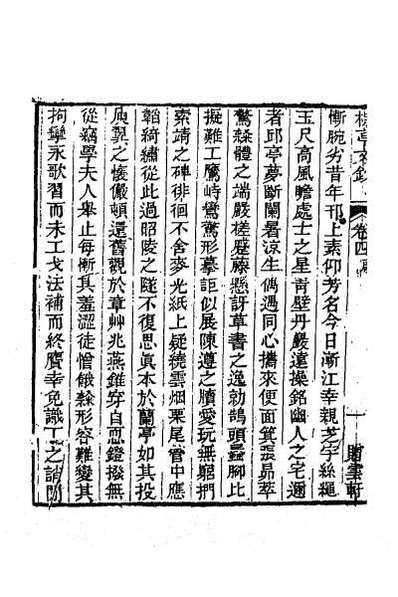 慚腕劣昔年邗上素仰芳名今日漸江幸親芝宇絲繩
玉尺高風瞻處士之星靑壁丹巖遠操銘幽人之宅邇
者邱亭夢斷闌暑涼生偶遇同心攜來便面箕張昴萃
驚隸體之端嚴槎蹙藤懸訝草書之逸勍鵠頭蠆腳比
擬難工鷹峙鸞騫形摹詎似展陳遵之牘愛玩無窮捫
索靖之碑徘徊不舍麥光紙上疑繞雲烟栗尾管中應
韜綺繡從此過昭陵之隧不復思眞本於蘭亭如其投
庾翼之牋儼頓還舊觀於章艸兆燕錐穿自恧鐙撥無
從竊學夫人舉止每慚其羞澀徒憎餓隸形容難變其
拘攣永歌習而未工戈法補而終贋幸免識丁之誚